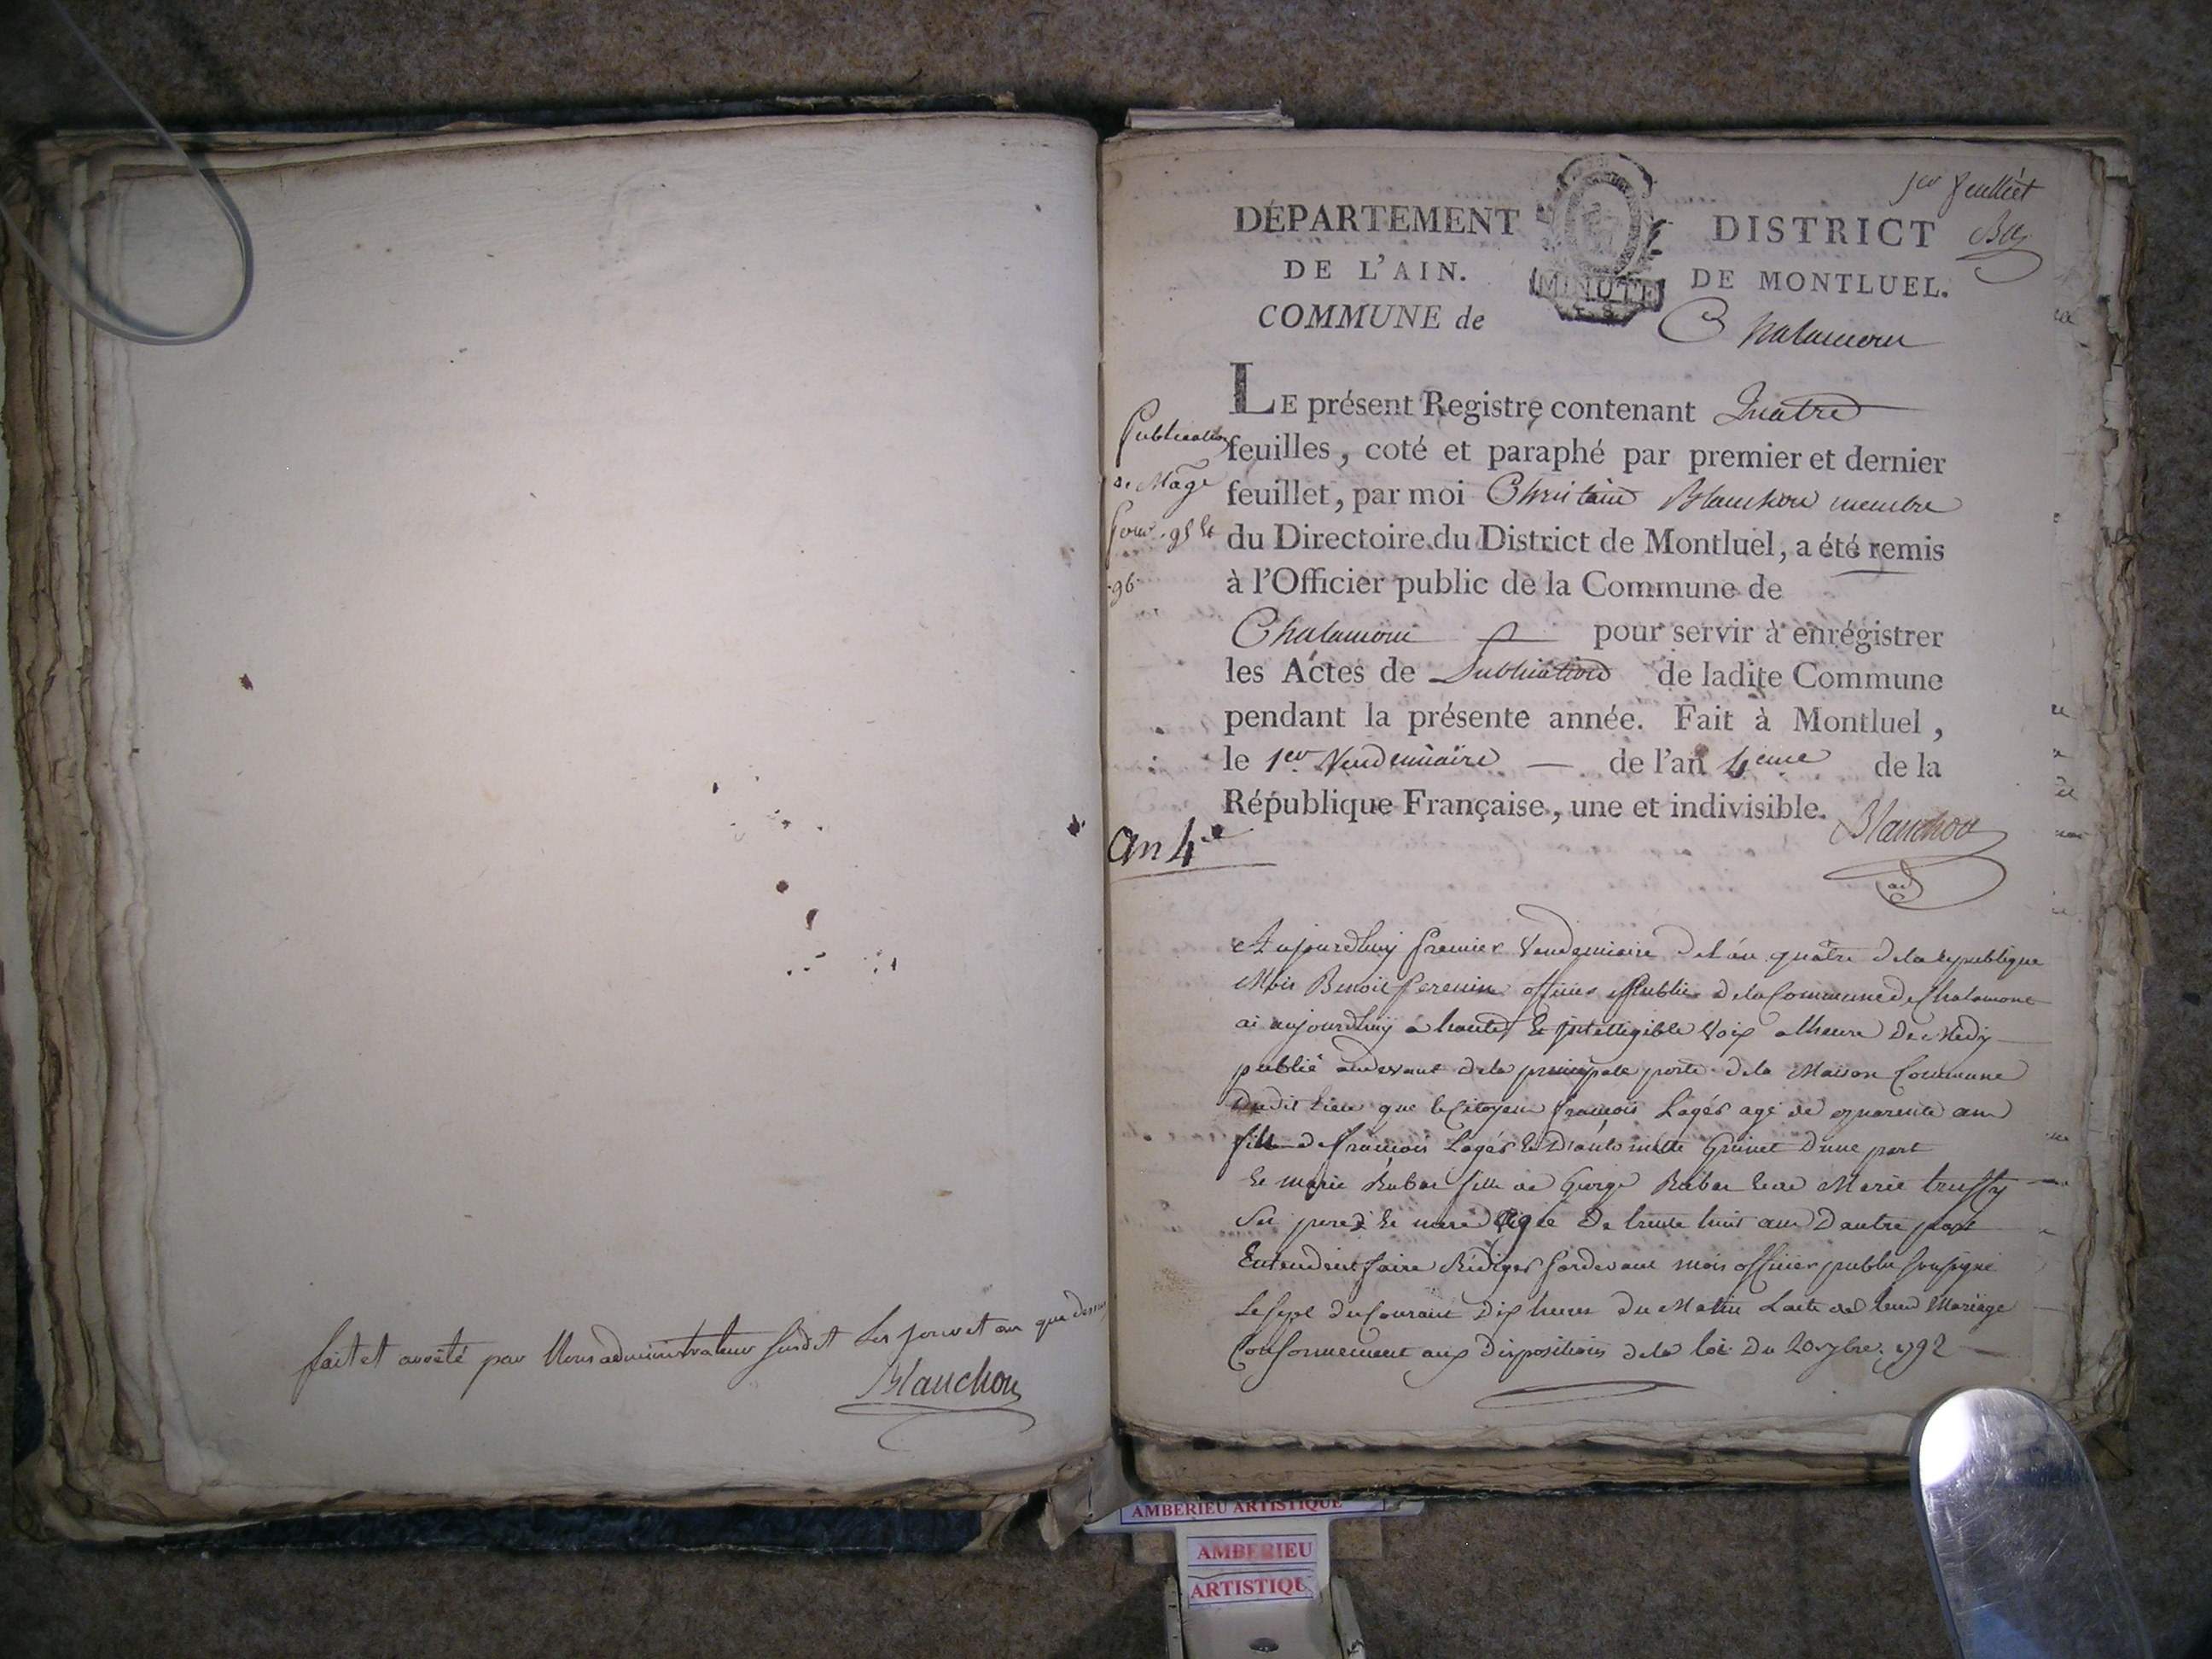 fait et arrêté par Nous administrateur susdit Les jour et an que dessus
Blanchon
1er feuillet
DÉPARTEMENT
DE L'AIN.
COMMUNE de
MINUTE
DISTRICT
DE MONTLUEL.
Chalamont
Publication
de Mage
pour 95 et
96
LE présent Registre contenant Quatre
feuilles, coté et paraphé par premier et dernier
feuillet, par moi Blanchon membre
du Directoire du District de Montluel, a été remis
à l'Officier public de la Commune de
Chalamont pour servir à enrégistrer
les Actes de Publications de ladite Commune
pendant la présente année. Fait à Montluel,
le 1er Vendemiaire — de l'an 4eme de la
République Française, une et indivisible.
Blanchon
an 4e
Aujourdhuy premier Vendemiaire de l'an quatre de la republique
Moi Benoit Perenin officier Public de la Commune de Chalamont
ai aujourdhuy a haute et Intelligible Voix a lheure de Midy
publié audevant de la principale porte de la Maison Commune
Dudit lieu que le Citoyen françois Lagér agé de quarente ans
fils de françois Lagér et D'antoinette Grinet D'une part
et marie Rubat fille de George Rubat et de Marie truffy
Ses pere et mere agée de trente huit ans D'autre part
Entendent faire Rédiger pardevant moi officier public soussigné
Le sept du Courant Dix heures du Matin Lacte de leur Mariage
Conformement aux dispositions de la loi du 20 7bre 1792
AMBERIEU ARTISTIQUE
AMBERIEU
ARTISTIQU